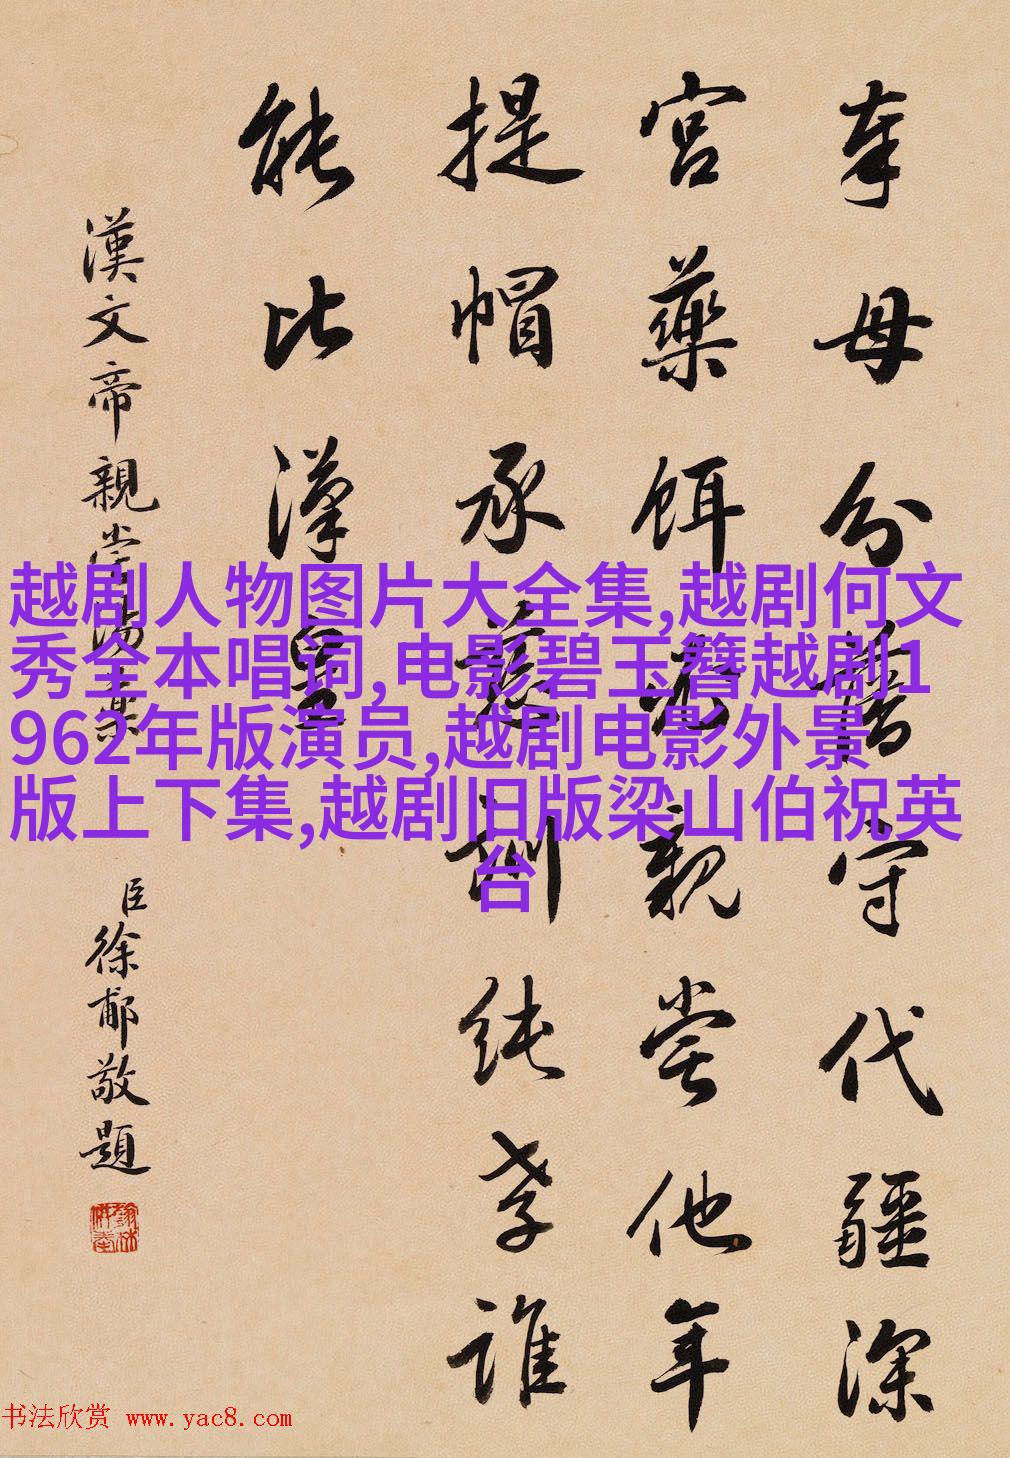 奉母分藩守代疆深
宮藥餌親嘗他年
提帽承慈訓純孝誰
能比漢皇
漢文帝親嘗湯藥
臣徐郙敬題
越剧人物图片大全集,越剧何文
秀全本唱词,电影碧玉簪越剧1
962年版演员,越剧电影外景
版上下集,越剧旧版梁山伯祝英
台
书法欣赏 www.yac8.com